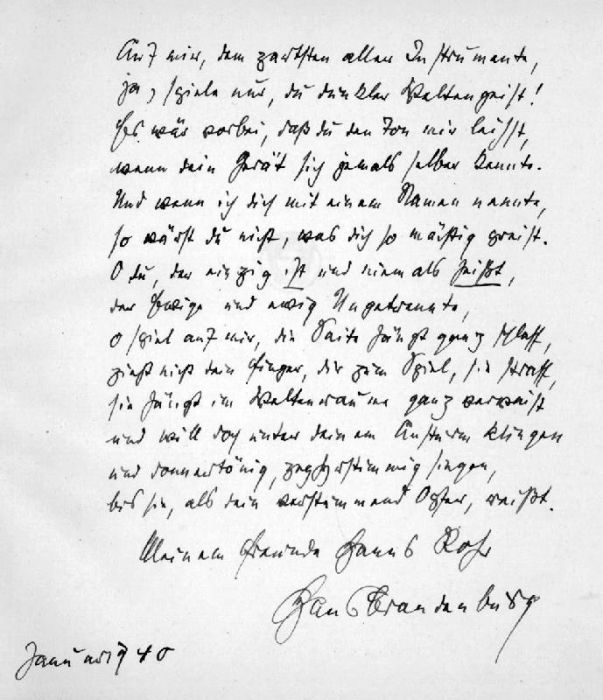 Auf mir, dem zartsten aller Instrumente,
ja, spiele nur, du dunkler Weltengeist!
Es wär vorbei, daß du den Ton mir leihst,
wenn dein Gerät sich jemals selber kennte.
Und wenn ich dich mit einem Namen nennte,
so wärst du nicht, was dich so mächtig preist.
O du, der einzig ist und niemals heißt,
der Ewige und ewig Ungetrennte,
o spiel auf mir, die Saite hängt ganz schlaff,
zieht nicht dein Finger, dir zum Spiel, sie straff,
sie hängt im Weltenraume ganz verwaist
und will doch unter deinem Ansturm klingen
und donnertönig, zephyrstimmig singen,
bis sie, als dein verstimmend Opfer, reißt.
Meinem Freunde Hanns Rohr
Hans Brandenburg
Januar 1940